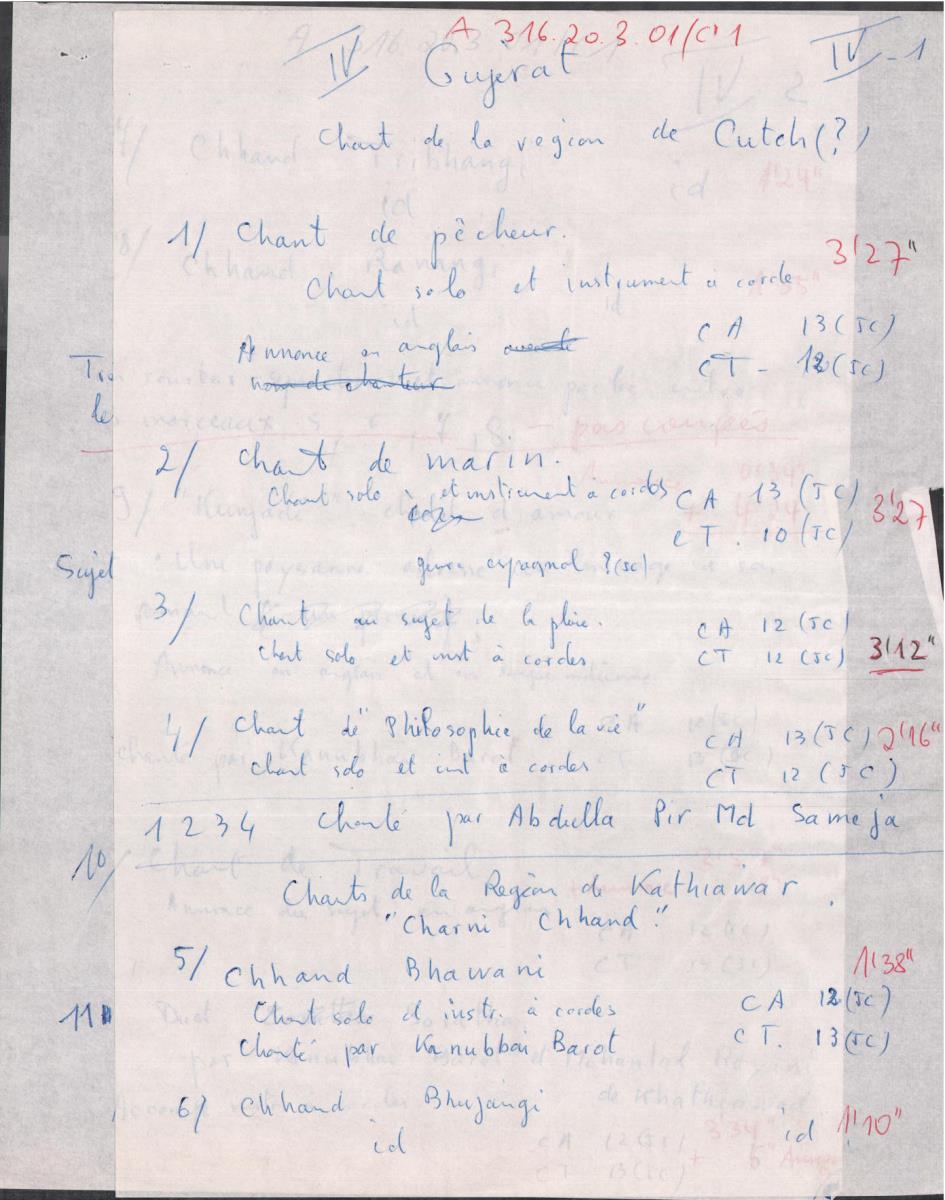 A 316.20.3.01/C1
IV Gujerat IV - 1
Chant de la region de Cutch(?)
1/ Chant de pêcheur.
3'27"
Chant solo et instrument à corde
CA 13(JC)
Annonce en anglais
CT - 12(JC)
nom de chanteur
le
2/ Chant de marin.
Chant solo et instrument à cordes CA 13 (JC) 3'27
CT. 10 (JC)
Sujet
genre espagnol ? (JC)
3/ Chant au sujet de la pluie. CA 12 (JC)
Chant solo et inst à cordes. CT 12 (JC) 3'12"
4/ Chant de "Philosophie de la vie" CA 13 (JC) 2'16"
Chant solo et int à cordes CT 12 (JC)
1 2 3 4 Chanté par Abdulla Pir Md Sameja
10/
Chants de la Région de Kathiawar.
"Charni Chhand"
5/ Chhand Bhawani 1'38"
11 Chant solo et instr. à cordes CA 12(JC)
Chanté par Kanubhai Barot CT. 13(JC)
6/ Chhand Bhujangi
id id 1'10"